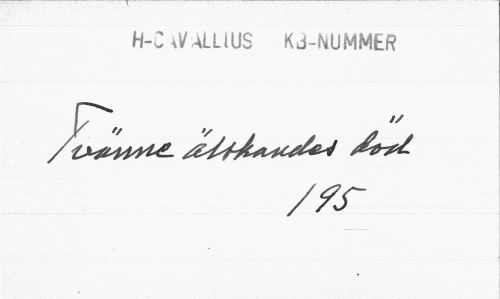 H-CAVALLIUS KB-NUMMER
Tvänne älskandes död
195